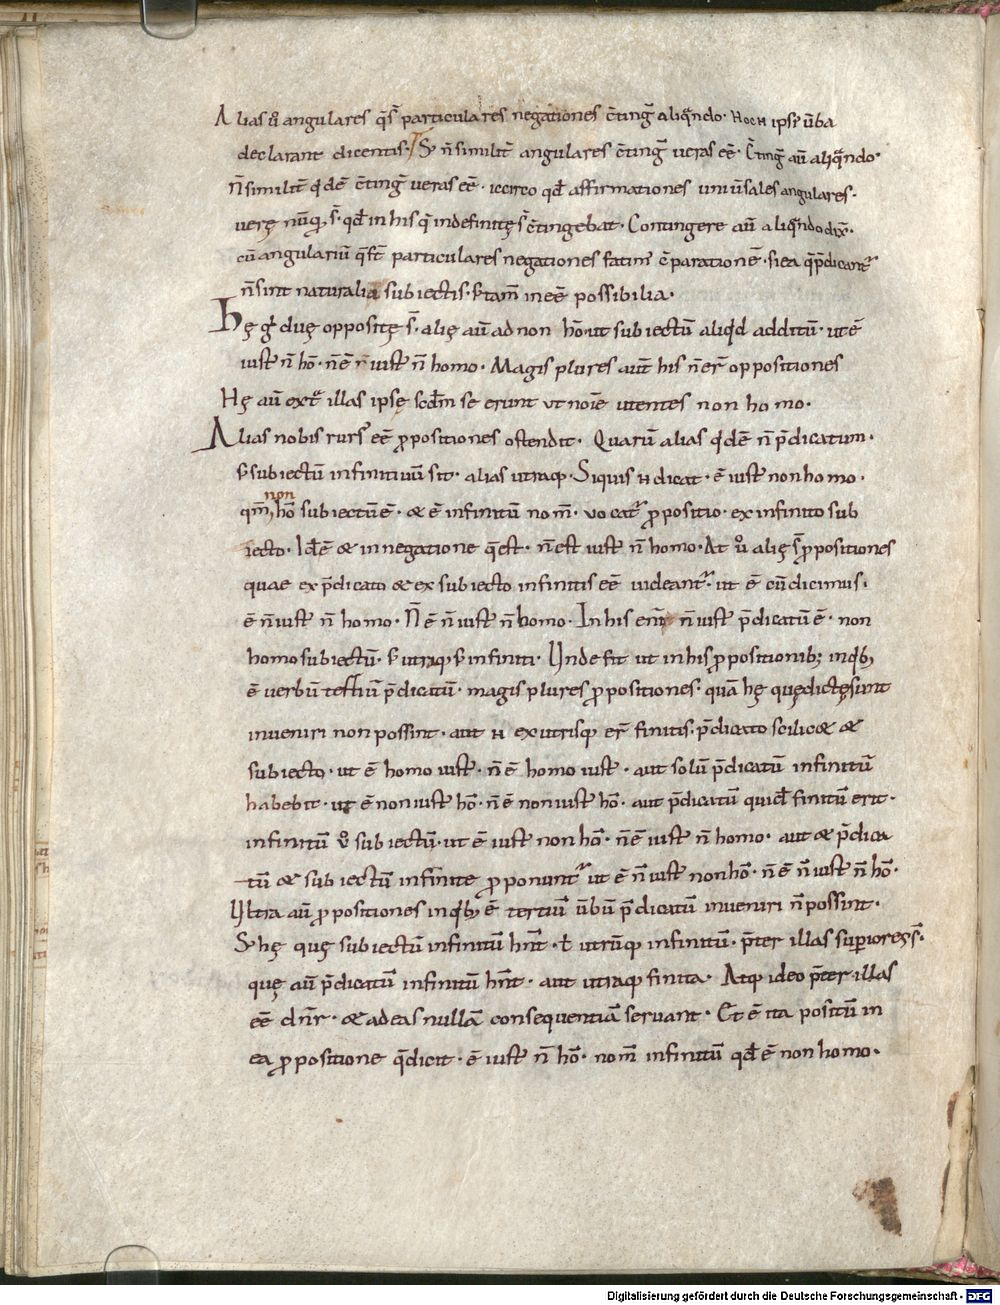 Alias u̅o angulares qs̅ particulares negationes c̅ting̅ aliqndo. Hoc n ipsi ūba
declarant dicentis. S; n̅ similit̅ angulares c̅ting̅ ueras eē. C̅ting̅ aū aliqndo.
n̅ similit̅ qde̅ c̅ting̅ ueras eē. iccirco qd̅ affirmationes uniūsales angulares.
uerę nūq; s̅. qd̅ in his q̅ indefinitę s̅ c̅tingebat. Contingere aū aliqndo dix̅.
cū angulariū particulares negationes fatim̅ c̅paratione̅. si ea q̅ p̅dicant̅
n̅ sint naturalia subiectis. s; tam̅ in eē possibilia.
Hę g̅ duę oppositę s̅. alię aū ad non ho̅ ut subiectū aliqd additū. ut ē
iust̅ n̅ ho̅. n̅ ē iust̅ n̅ homo. Magis plures aut̅ his n̅ er̅ oppositiones
Hę aū ext̅ illas ipsę scd̅m se erunt ut noi̅e utentes non homo.
Alias nobis rurs̅ eē p̱positiones ostendit. Quarū alias qde̅ n̅ p̅dicatum.
s; subiectū infinituū sit. alias utraq;. Siquis n dicat. ē iust̅ non homo.
qm̅ non ho̅ subiectū ē. & ē infinitū nom̅. uocat̅ p̱positio. ex infinito sub
iecto. Ide̅ & in negatione q̅ est. n̅ est iust̅ n̅ homo. At u̅o alię s̅ p̱positiones
quae ex p̅dicato & ex subiecto infinitis eē uideant̅. ut ē cū dicimus.
ē n̅ iust̅ n̅ homo. N̅ ē n̅ iust̅ n̅ homo. In his eni̅ n̅ iust̅ p̅dicatū ē. non
homo subiectū. s; utraq; s̅ infiniti. Unde fit ut in his p̱positionib; in qb;
ē uerbū tertiū p̅dicatū. magis plures p̱positiones. quā hę quę dictę sunt
inueniri non possint. aut n ex utrisq; er̅ finitis. p̅dicato scilic& &
subiecto. ut ē homo iust̅. n̅ ē homo iust̅. aut solū p̅dicatū infinitū
habebit. ut ē non iust̅ ho̅. n̅ ē non iust̅ ho̅. aut p̅dicatū quid̅ finitū erit.
infinitū u̅o subiectū. ut ē iust̅ non ho̅. n̅ ē iust̅ n̅ homo. aut & p̅dica
tū & subiectū infinite p̱ponunt̅ ut ē n̅ iust̅ non ho̅. n̅ ē n̅ iust̅ n̅ ho̅.
Ultra aū p̱positiones in qb; ē tertiū ūbū p̅dicatū inueniri n̅ possint.
S; hę quę subiectū infinitū hn̅t. ł utrūq; infinitū. p̅ter illas sup̱iores s̅.
quę aū p̅dicatū infinitū hn̅t. aut utraq; finita. Atq; ideo p̅ter illas
eē dn̅r. & ad eas nullā consequentiā seruant. Et ē ita positū in
ea p̱positione q̅ dicit. ē iust̅ n̅ ho̅. nom̅ infinitū qd̅ ē non homo.
Digitalisierung gefördert durch die Deutsche Forschungsgemeinschaft - DFG